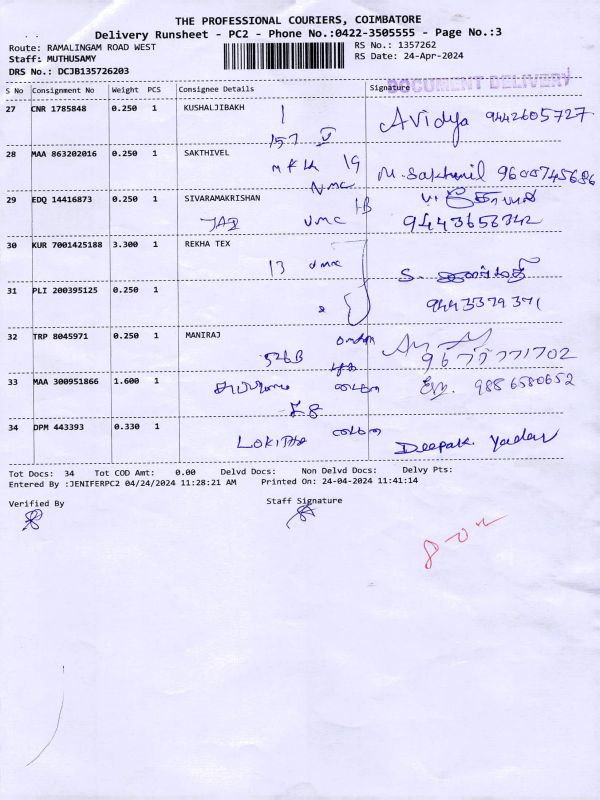 THE PROFESSIONAL COURIERS, COIMBATORE
Delivery Runsheet - PC2 - Phone No.:0422-3505555 - Page No.:3
Route: RAMALINGAM ROAD WEST
RS No.: 1357262
Staff: MUTHUSAMY
RS Date: 24-Apr-2024
DRS No.: DCJB135726203
DOCUMENT DELIVERY
S No Consignment No Weight PCS Consignee Details Signature
27 CNR 1785848 0.250 1 KUSHALJIBAKH
157 A Vidya 9442605727
28 MAA 863202016 0.250 1 SAKTHIVEL
19 M. Sakthivel 9600745686
29 EDQ 14416873 0.250 1 SIVARAMAKRISHAN
9443656342
30 KUR 7001425188 3.300 1 REKHA TEX
13
31 PLI 200395125 0.250 1
9443379371
32 TRP 8045971 0.250 1 MANIRAJ
526B 9677771702
33 MAA 300951866 1.600 1
9886580652
58
34 DPM 443393 0.330 1
Deepak Yadav
Tot Docs: 34 Tot COD Amt: 0.00 Delvd Docs: Non Delvd Docs: Delvy Pts:
Entered By :JENIFERPC2 04/24/2024 11:28:21 AM Printed On: 24-04-2024 11:41:14
Verified By Staff Signature